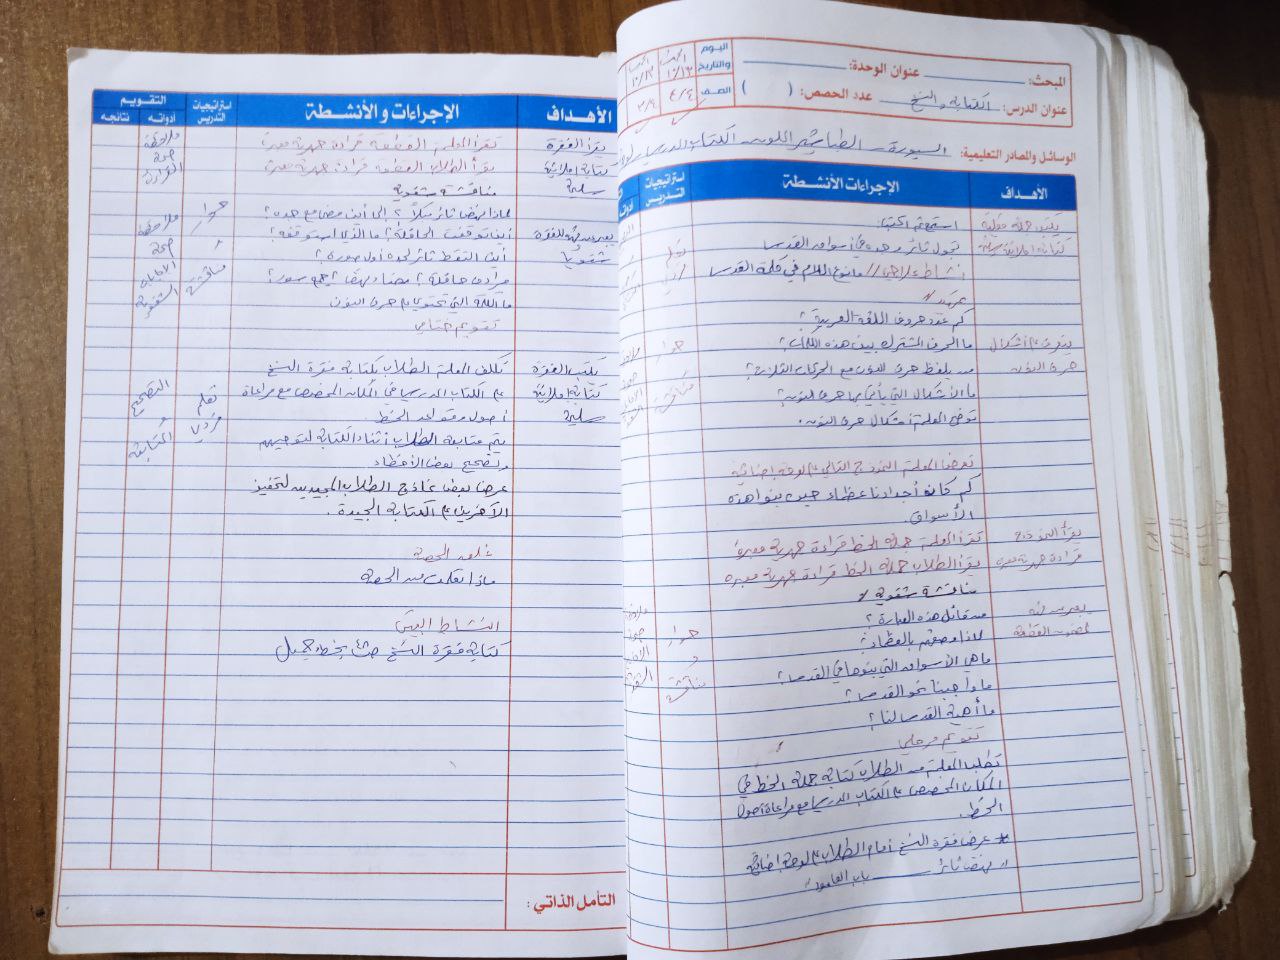 المبحث: عنوان الوحدة:
اليوم والتاريخ
عنوان الدرس: الكتابة والنسخ عدد الحصص: ( )
الصف ٤/٤ ٣/٤
الوسائل والمصادر التعليمية: السبورة الطباشير الملون الكتاب المدرسي
الأهداف الإجراءات الأنشطة استراتيجيات التدريس
يكتب جملة
استمع ثم اكتب:
كتابة إملائية سليمة
تجول ثائر وجده في أسواق القدس
نشاط علاجي // ما نوع اللام في كلمة القدس
تمهيد //
كم عدد حروف اللغة العربية؟
يتعرف على أشكال
ما الحرف المشترك بين هذه الكلمات؟
حوار
حرف النون
من يلفظ حرف النون مع الحركات الثلاثة؟
ما الأشكال التي يأتي بها حرف النون؟
مناقشة
توضح المعلمة أشكال حرف النون.
تعرض المعلمة النموذج التالي على لوحة إضافية
كم كانوا أجدادنا عظماء حين بنوا هذه
الأسواق.
يقرأ النموذج
تقرأ المعلمة جملة الخط قراءة جهرية معبرة
قراءة جهرية معبرة
يقرأ الطلاب جملة الخط قراءة جهرية معبرة
مناقشة شفوية //
من قائل هذه العبارة؟
لماذا وصفهم بالعظماء؟
حوار
و
ما هي الأسواق التي بنوها في القدس؟
مناقشة
ما واجبنا نحو القدس؟
ما أهمية القدس لنا؟
تقويم مرحلي
تطلب المعلمة من الطلاب كتابة جملة الخط في
المكان المخصص على الكتاب المدرسي مع مراعاة أصول
الخط.
* عرض فقرة النسخ أمام الطلاب على لوحة إضافية
" نهض ثائر باب العامود "
الأهداف الإجراءات والأنشطة استراتيجيات التدريس التقويم
أدواته نتائجه
يقرأ الفقرة
تقرأ المعلمة القطعة قراءة جهرية معبرة
ملاحظة
يقرأ الطلاب القطعة قراءة جهرية معبرة
صحة
كتابة إملائية
القراءة
سليمة
مناقشة شفوية
لماذا نهض ثائر مبكراً؟ إلى أين مضى مع جده؟
حوار
ملاحظة
أين توقفت الحافلة؟ ما الذي استوقفه؟
صحة
شفوياً
أين التقط ثائر لجده أول صورة؟
و
الإجابات
مرادف حافلة؟ مضاد نهض؟ جمع سور؟
مناقشة
الشفوية
ما الكلمة التي تحتوي على حرف النون
تقويم ختامي
يكتب الفقرة
تكلف المعلمة الطلاب بكتابة فقرة النسخ
كتابة إملائية
على الكتاب المدرسي في المكان المخصص مع مراعاة
سليمة
أصول وقواعد الخط
تعلم فردي
التصحيح
و
المتابعة
يتم متابعة الطلاب أثناء الكتابة لتوجيههم
وتصحيح بعض الأخطاء
عرض بعض نماذج الطلاب المجيدين لتحفيز
الآخرين على الكتابة الجيدة.
غلق الحصة
ماذا تعلمت من الحصة
النشاط البيتي
كتابة فقرة النسخ بخط جميل
التأمل الذاتي: